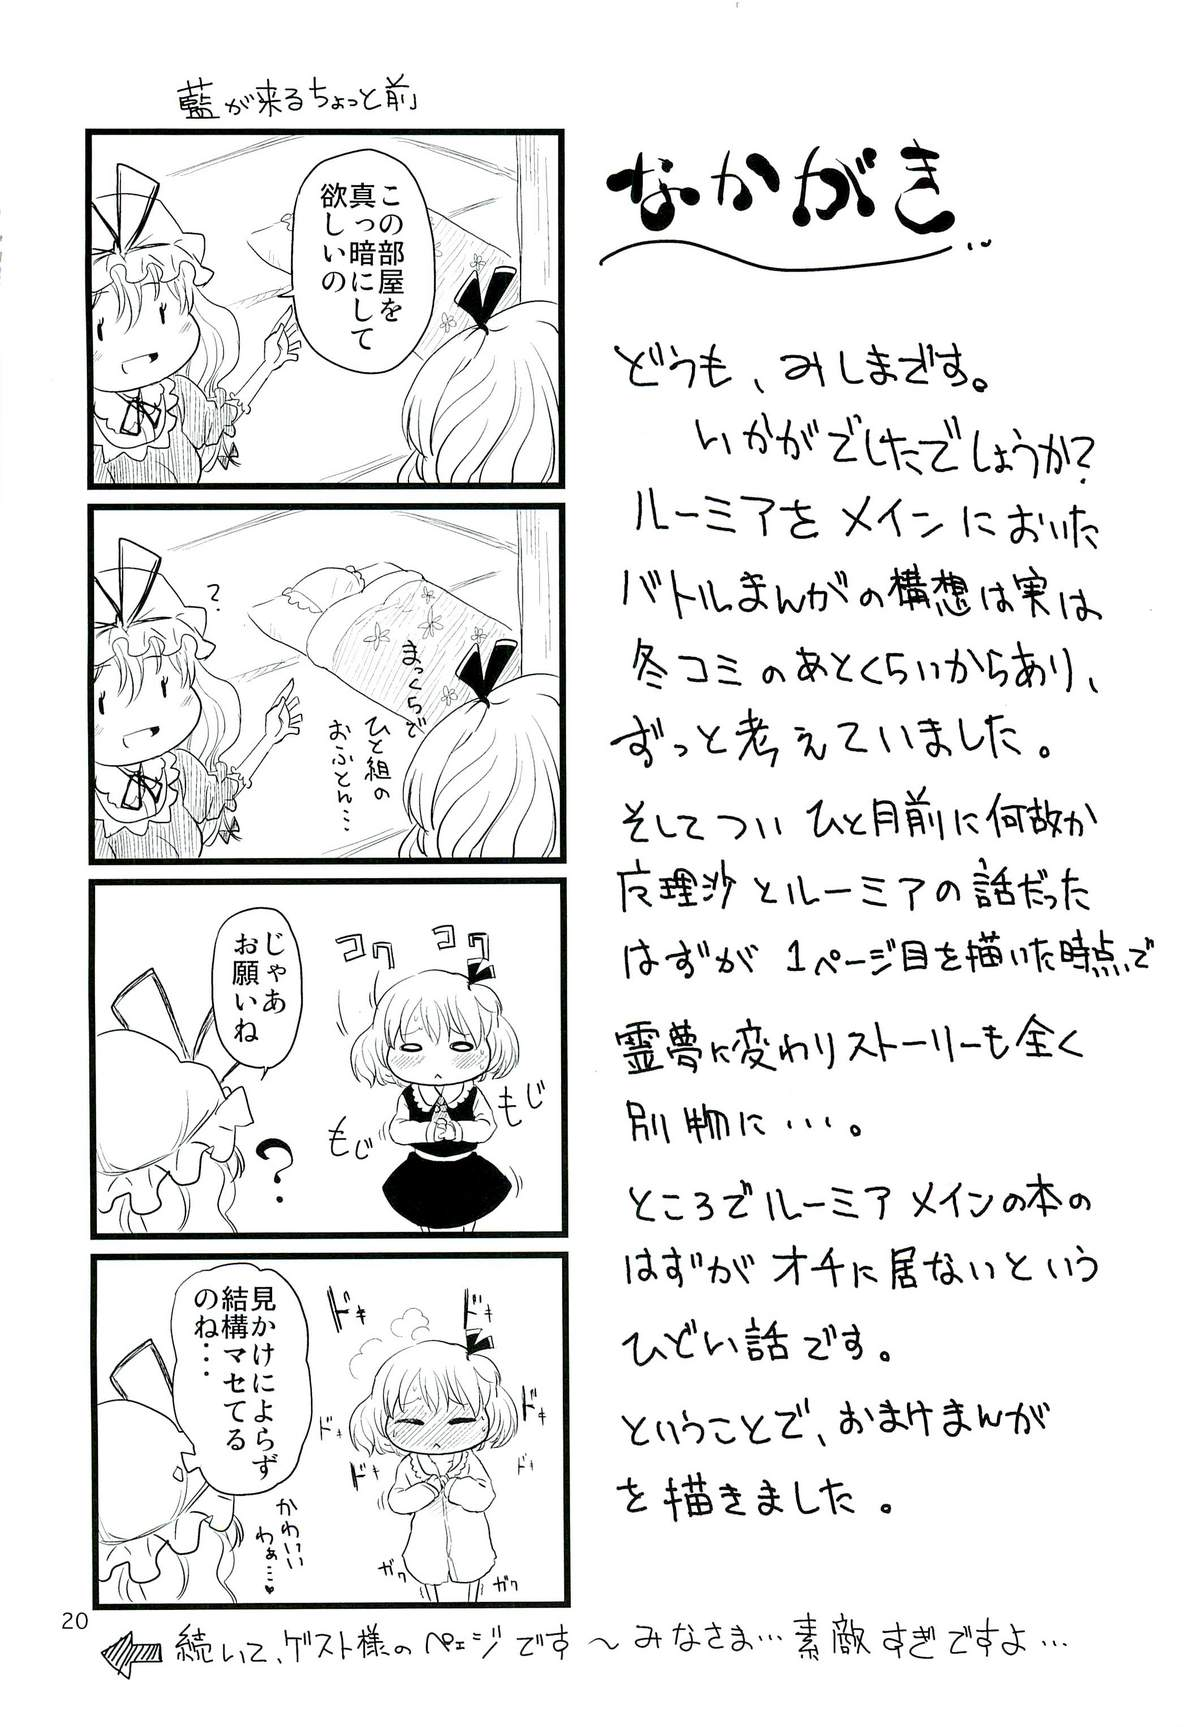 なかがき
どうも、みしまです。
いかがでしたでしょうか?
ルーミアをメインにおいた
バトルまんがの構想は実は
冬コミのあとくらいからあり、
ずっと考えていました。
そしてつい ひと月前に何故か
广理沙とルーミアの話だった
はずが 1ページ目を描いた時点で
霊夢に変わりストーリーも全く
別物に・・・。
ところでルーミアメインの本の
はずがオチに居ないという
ひどい話です。
ということで、おまけまんが
を描きました。
藍が来るちょっと前
この部屋を
真っ暗にして
欲しいの
?
まっくらで
ひと組の
おふとん…
コクコク
じゃあ
お願いね
もじ
もじ
?
見かけによらず
結構マセてる
のね・・・
ドキ
ドキ
ドキ
ドキ
ドキ
かわいい
わぁ…♥
ガク
ガク
20
続いて、ゲスト様のページです〜みなさま…素敵すぎですよ…